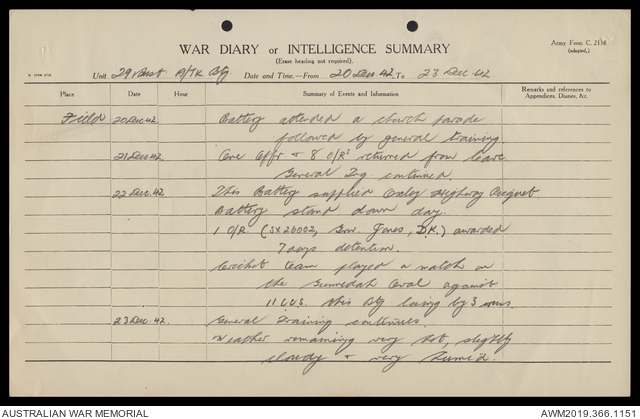 WAR DIARY or INTELLIGENCE SUMMARY
Army Form C. 2118
(adapted.)
(Erase heading not required).
Unit 29 Aust A/TK Bty. Date and Time.—From 20 Dec 42 To 23 Dec 42.
Place Date Hour Summary of Events and Information Remarks and references to
Appendices, Diaries, &c.
Field 20 Dec 42 Battery attended a church parade
followed by general training.
21 Dec 42. One Offr & 8 O/Rs returned from leave
General Tng continued.
22 Dec. 42. This Battery supplied Oxley Highway Picquet
Battery stand down day.
1 O/R (SX26002, Gnr. Jones, D.K.) awarded
7 days detention.
Cricket team played a match on
the Gunnedah Oval against
11 CCS. this Bty losing by 3 runs.
23 Dec. 42. General Training continues.
Weather remaining very hot, slightly
cloudy & very humid.
AUSTRALIAN WAR MEMORIAL AWM2019.366.1151